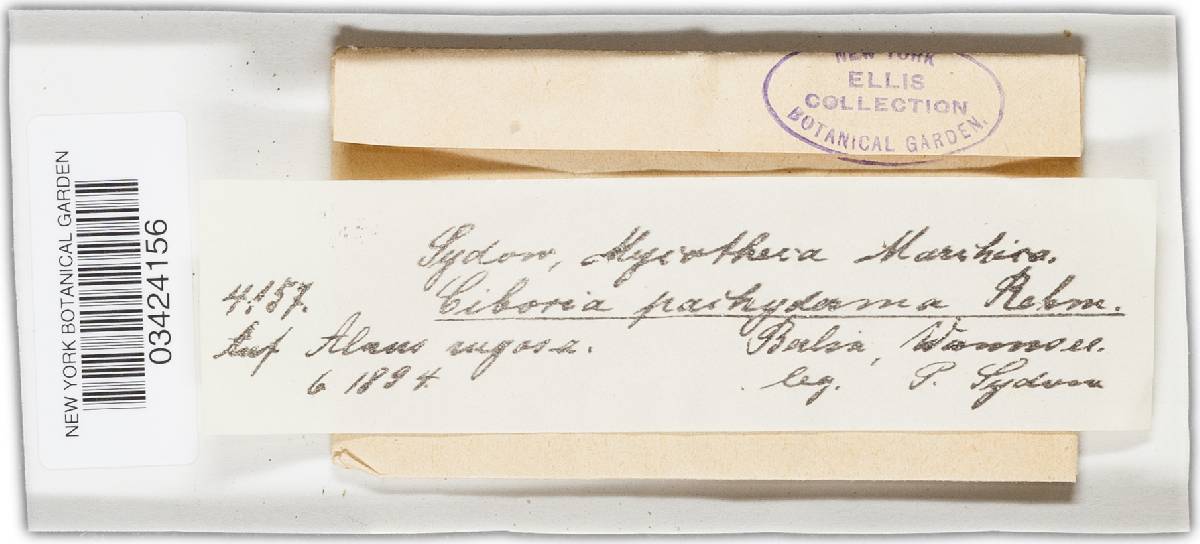 NEW YORK
ELLIS
COLLECTION
BOTANICAL GARDEN.
NEW YORK BOTANICAL GARDEN
03424156
Sydow, Mycotheca Marchica.
4157. Ciboria pachyderma Rehm.
Auf Alnus rugosa. Berlin, Wannsee.
6 1894 leg. P. Sydow